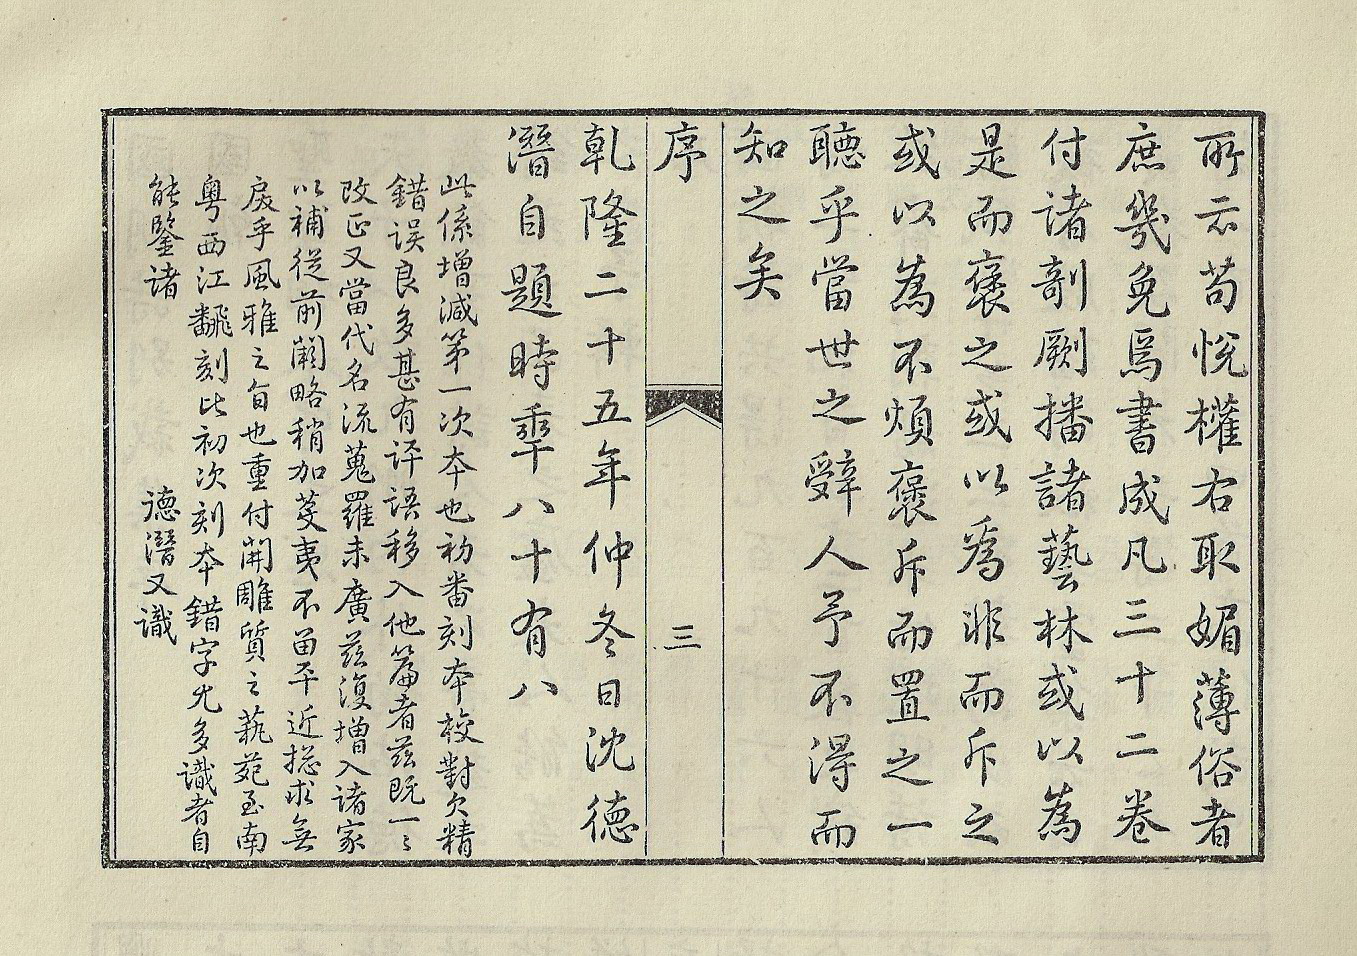 所云苟悅權右取媚薄俗者
庶幾免焉書成凡三十二卷
付諸剞劂播諸藝林或以為
是而褒之或以為非而斥之
或以為不煩褒斥而置之一
聽乎當世之辭人予不得而
知之矣
序
三
乾隆二十五年仲冬日沈德
潛自題時年八十有八
此係增減第一次本也初番刻本校對欠精
錯誤良多甚有評語移入他篇者茲既一〻
改正又當代名流蒐羅未廣茲復增入諸家
以補從前闕略稍加芟夷不留平近總求無
戾乎風雅之旨也重付開雕質之藝苑至南
粵西江翻刻此初次刻本錯字尤多識者自
能鑒諸
德潛又識